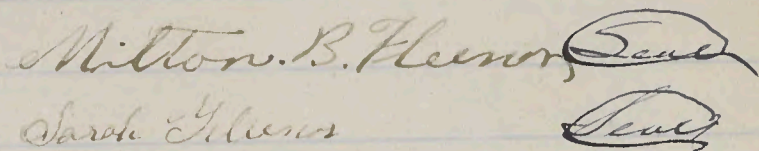 Milton. B. Fleenor, Seal
Sarah Fleenor Seal